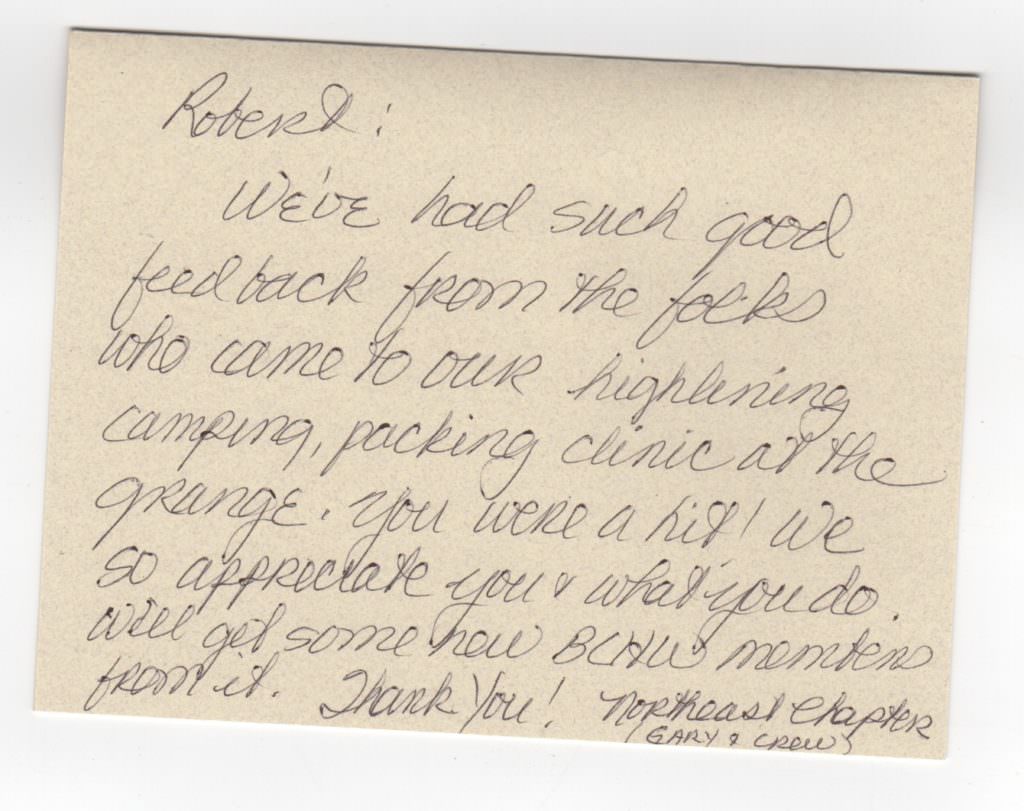 Robert:
We've had such good
feedback from the folks
who came to our highlining
camping, packing clinic at the
grange. You were a hit! We
so appreciate you & what you do.
Will get some new BCHW members
from it. Thank You! Northeast Chapter
(GARY & CREW)